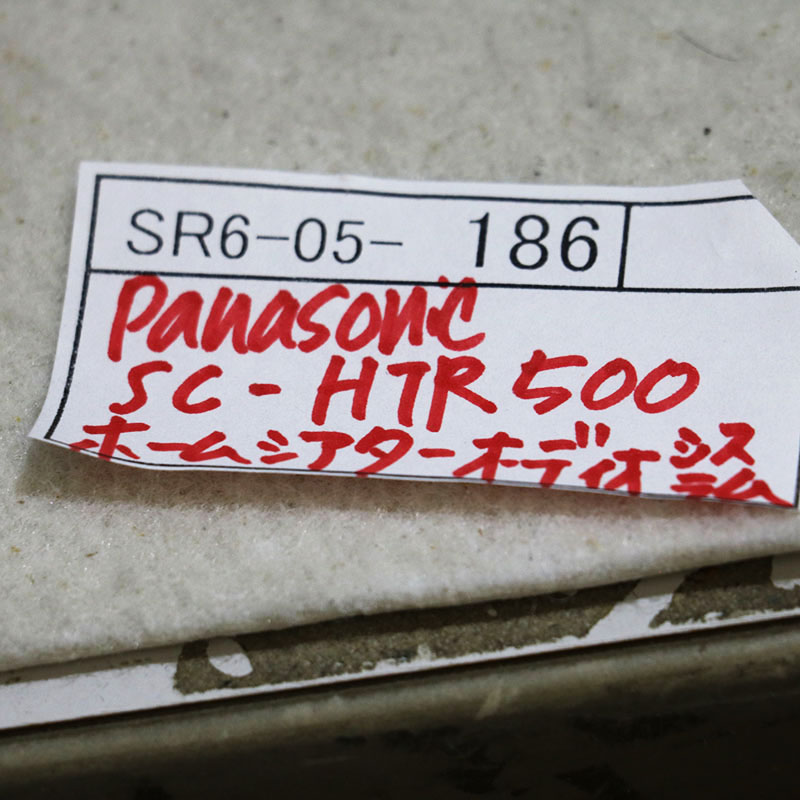 SR6-05- 186
Panasonic
SC-HTR500
ホームシアターオーディオシステム